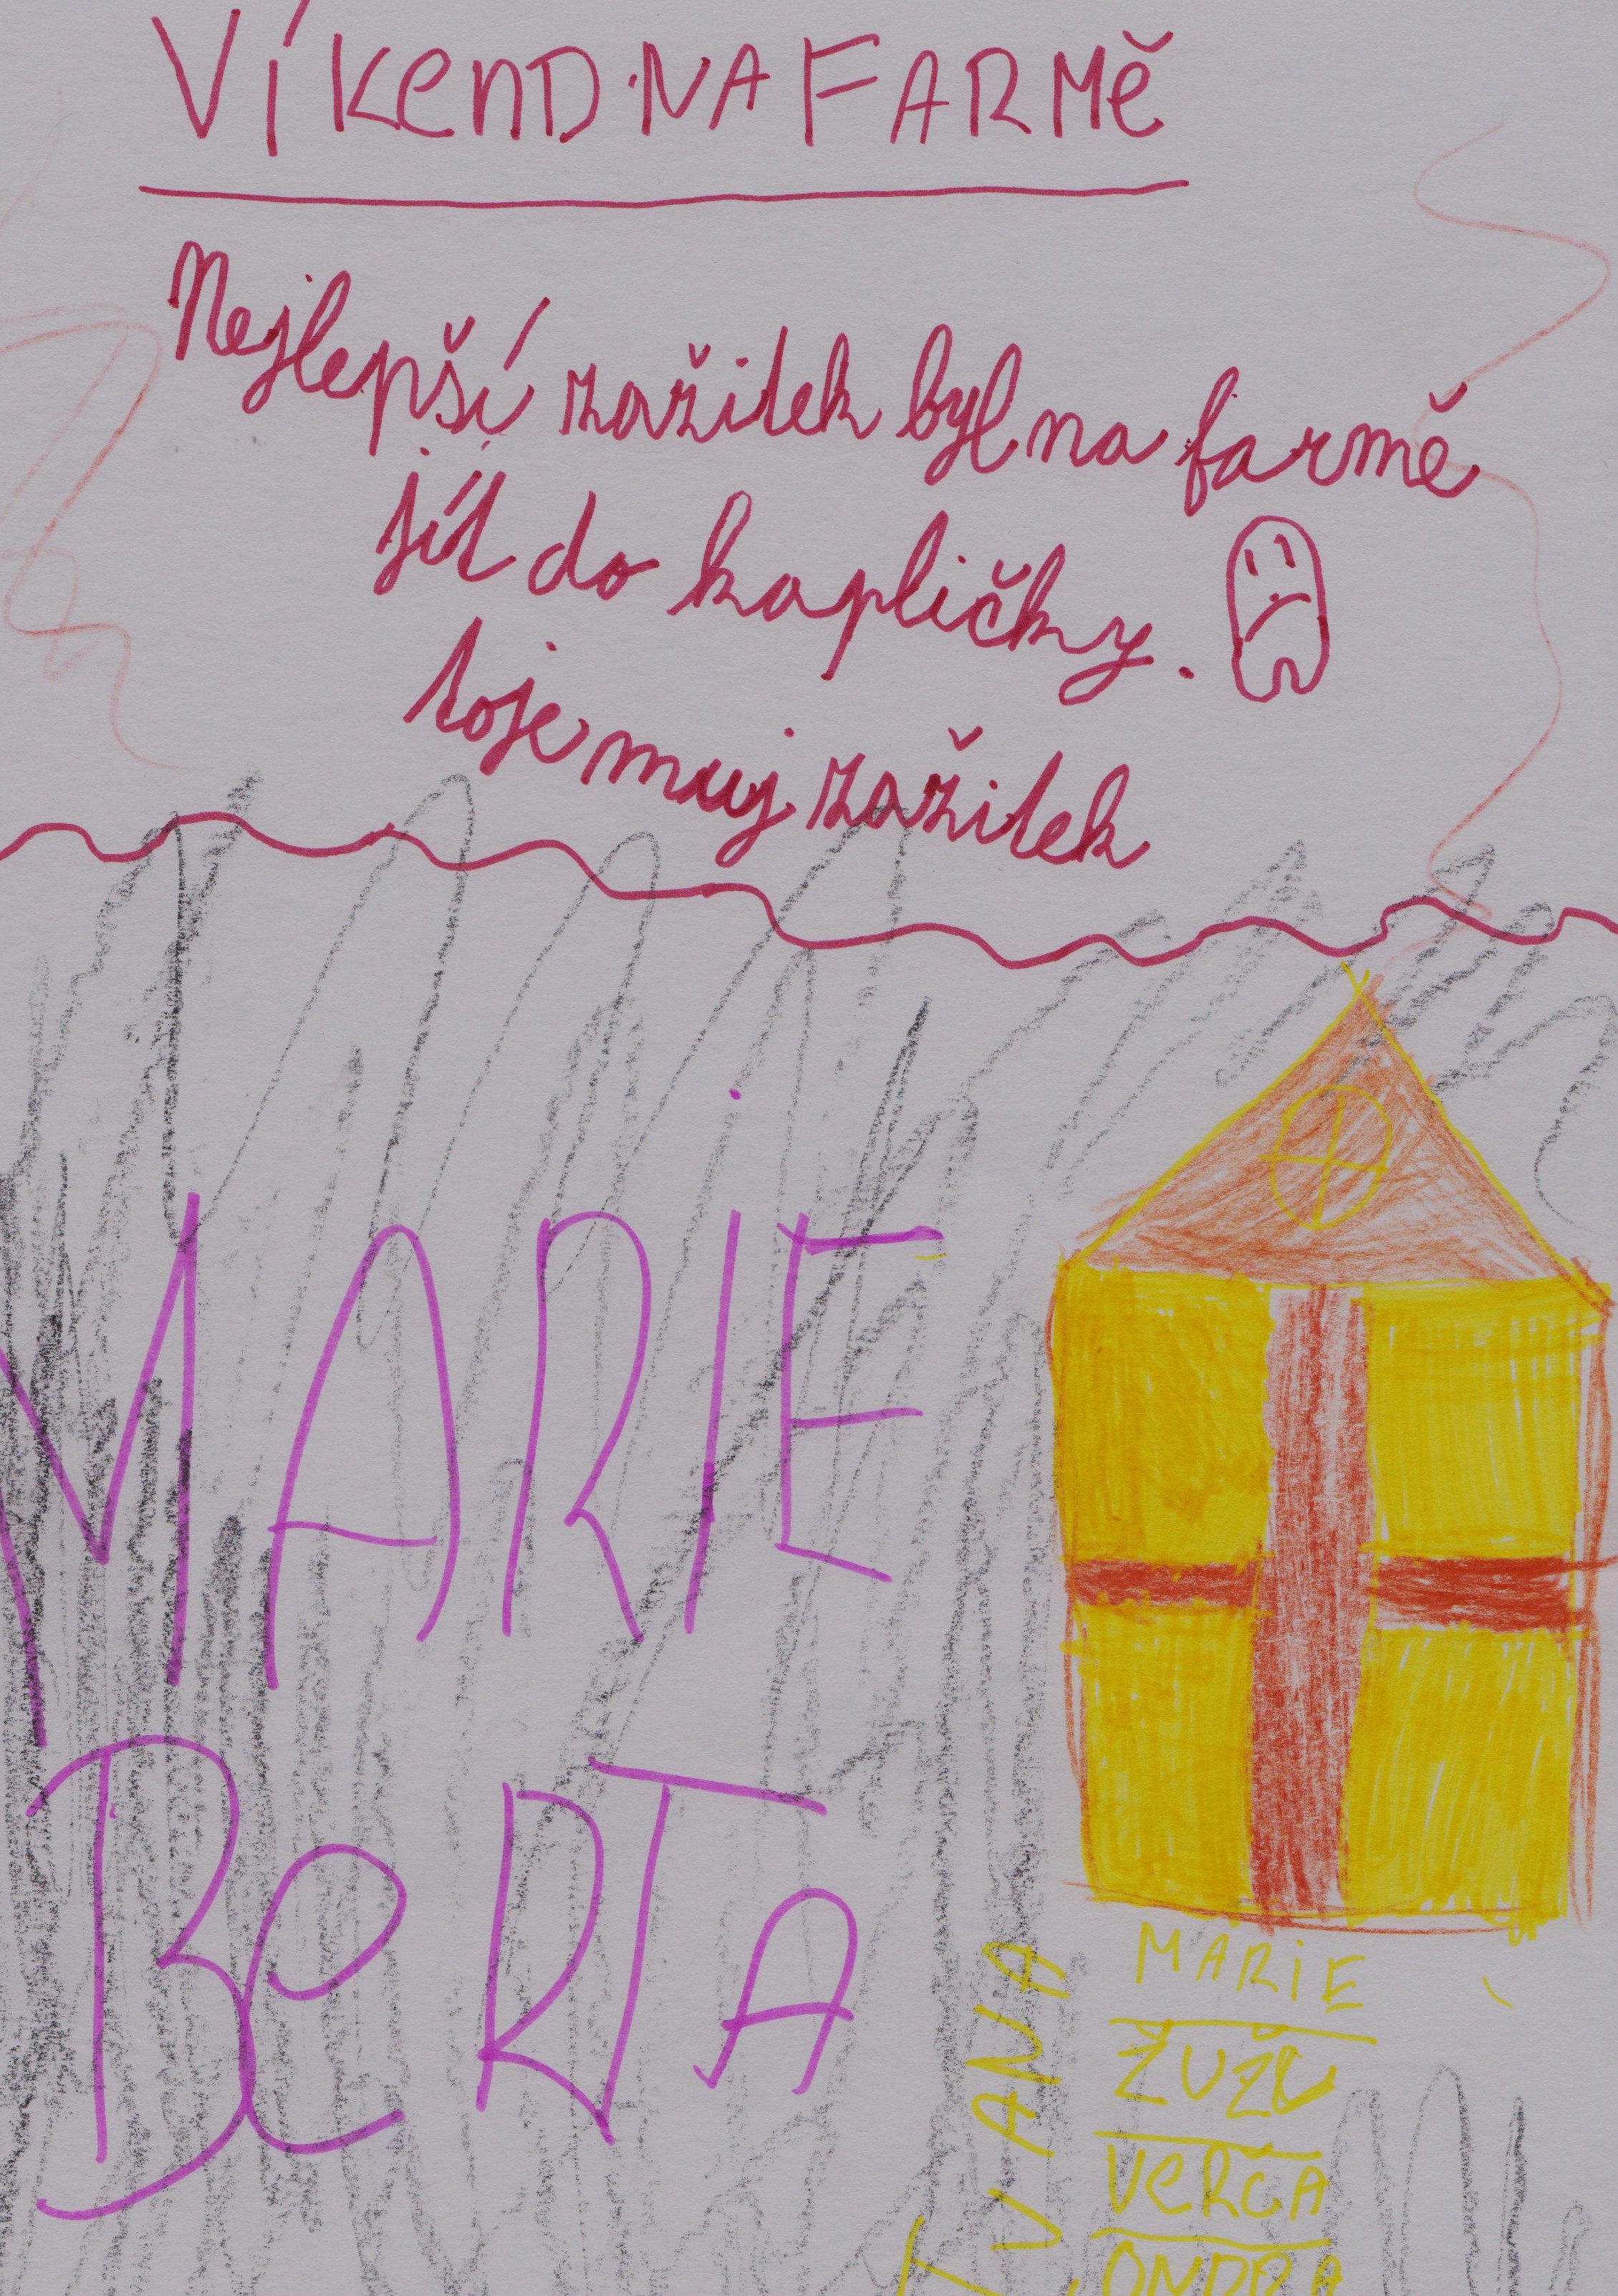 VÍKenD NA FARMě
Nejlepší zažitek byl na farmě
jít do kapličky.
toje muj zažitek
MARiE
BeRTA
MARiE
ŽUŽU
VeRČA
ONDRA